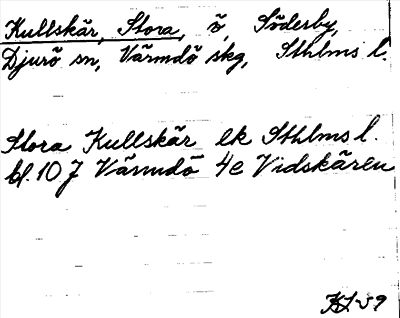 Kullskär, Stora, ö, Söderby,
Djurö sn, Värmdö skg, Sthlms l.
Stora Kullskär ek Sthlms l.
bl. 10 J Värmdö 4e Vidskären
KL-59